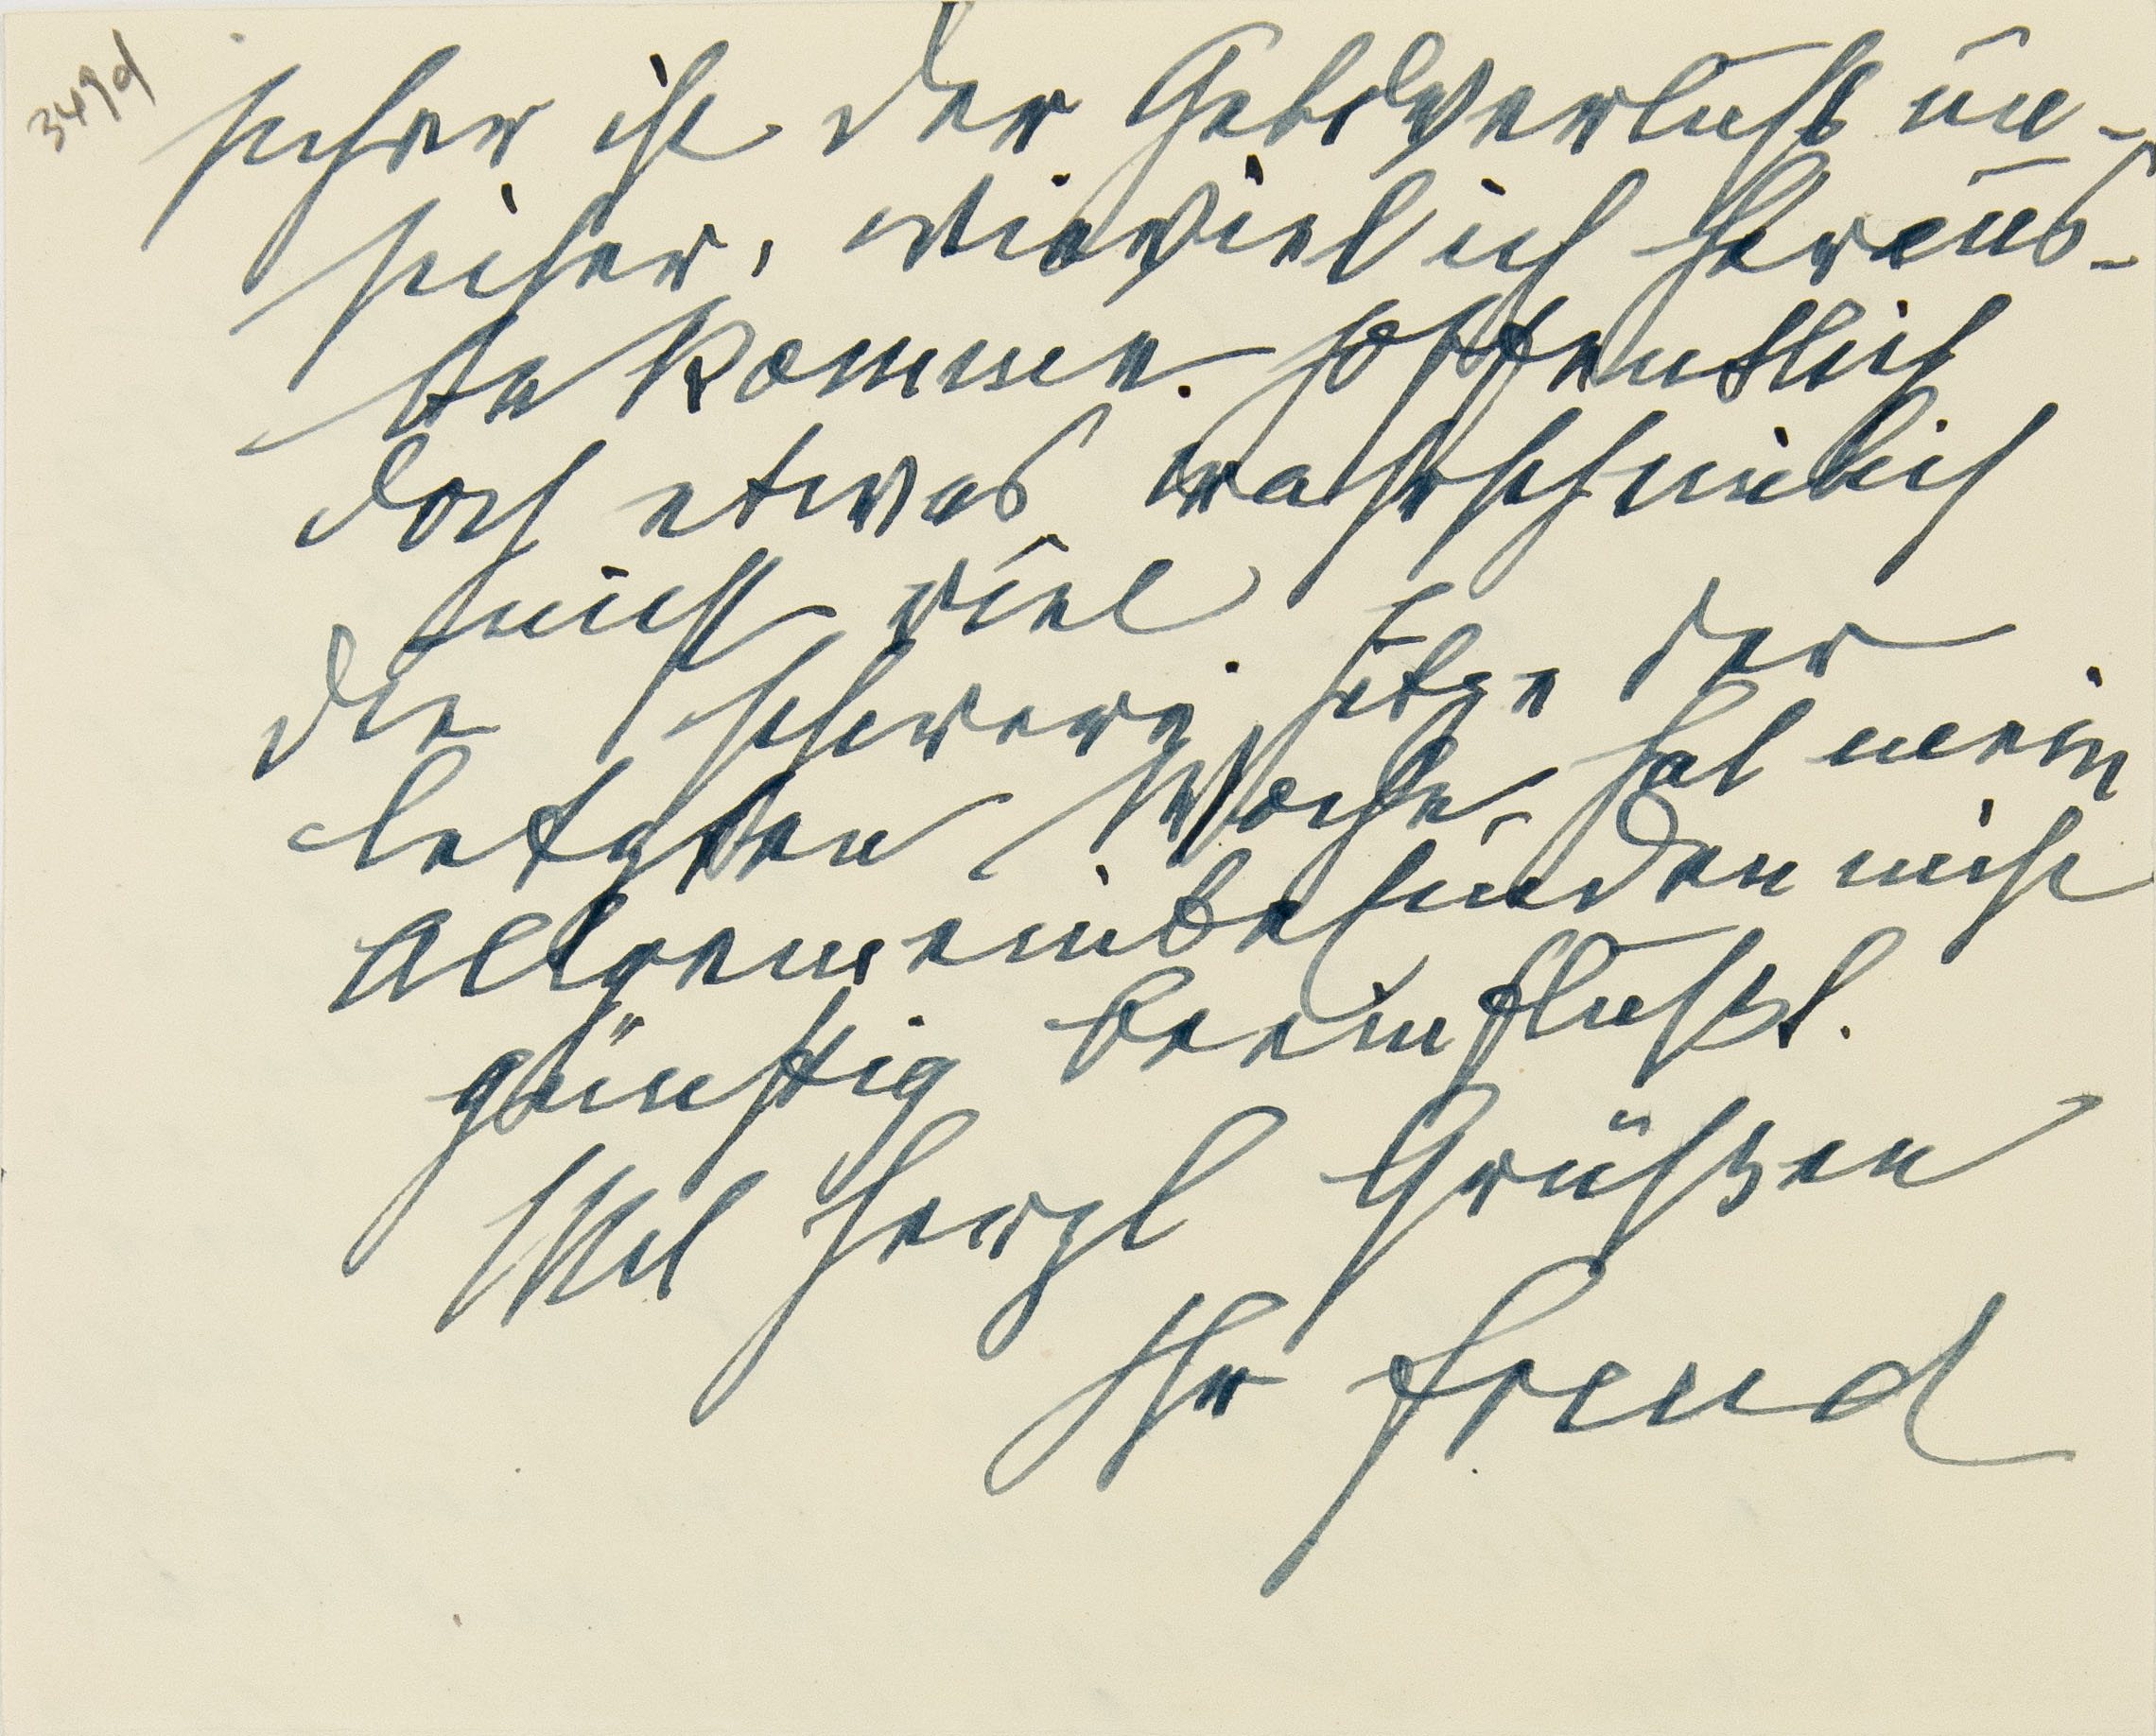 349d
sicher ist der Geldverlust un-
sicher, wieviel ich heraus-
bekomme. Hoffentlich
doch etwas wahrscheinlich
nicht viel.
Die schwere Hitze der
letzten Woche hat mein
Allgemeinbefinden nicht
günstig beeinflußt.
Mit herzl Grüßen
Ihr Freud